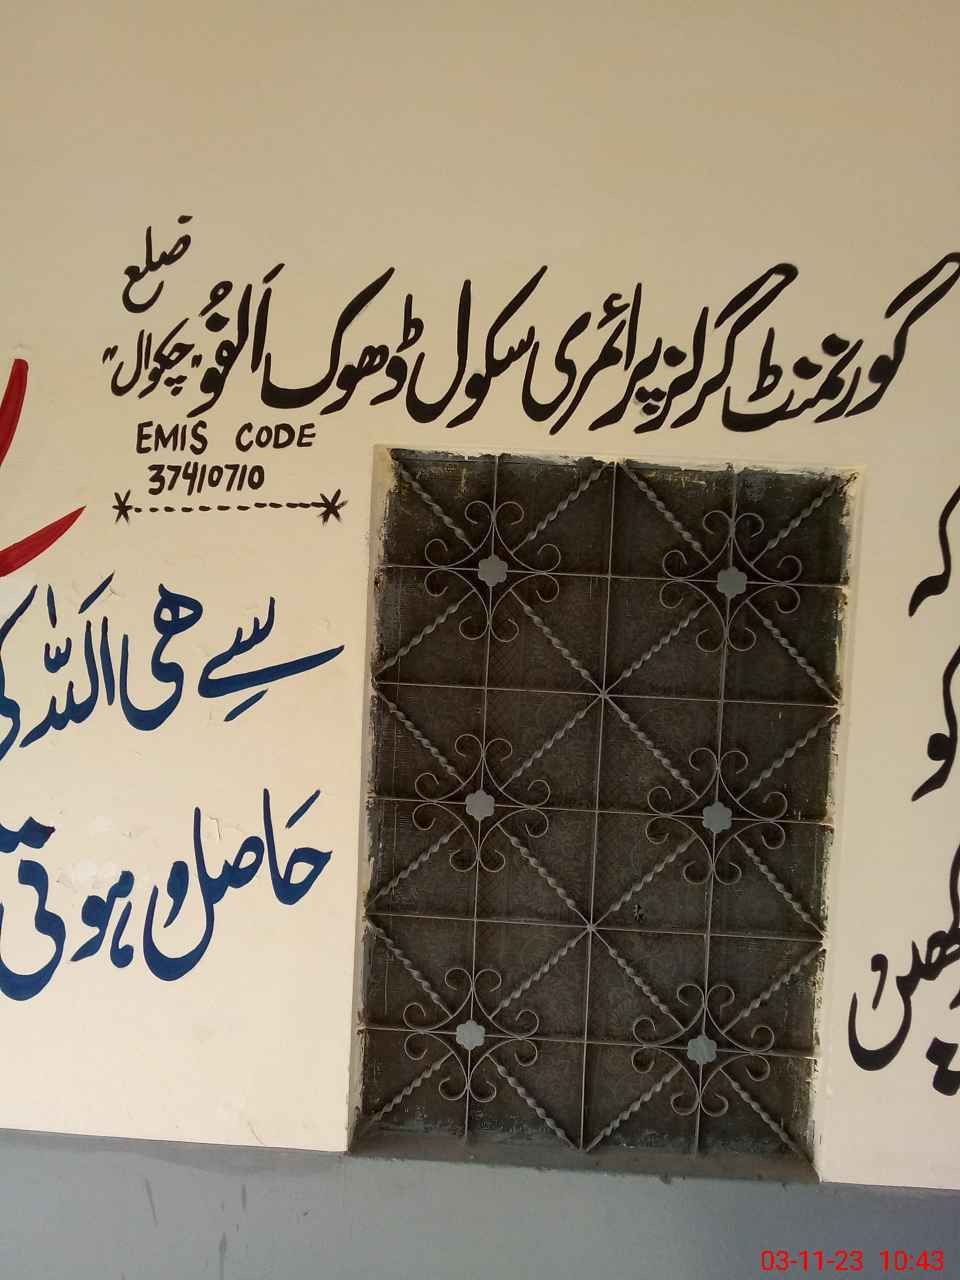 گورنمنٹ گرلز پرائمری سکول ڈھوک الفو "چکوال" ضلع
EMIS CODE
37410710
سے ھی اللہ کی
حاصل ہوتی
کہ
کو
03-11-23 10:43